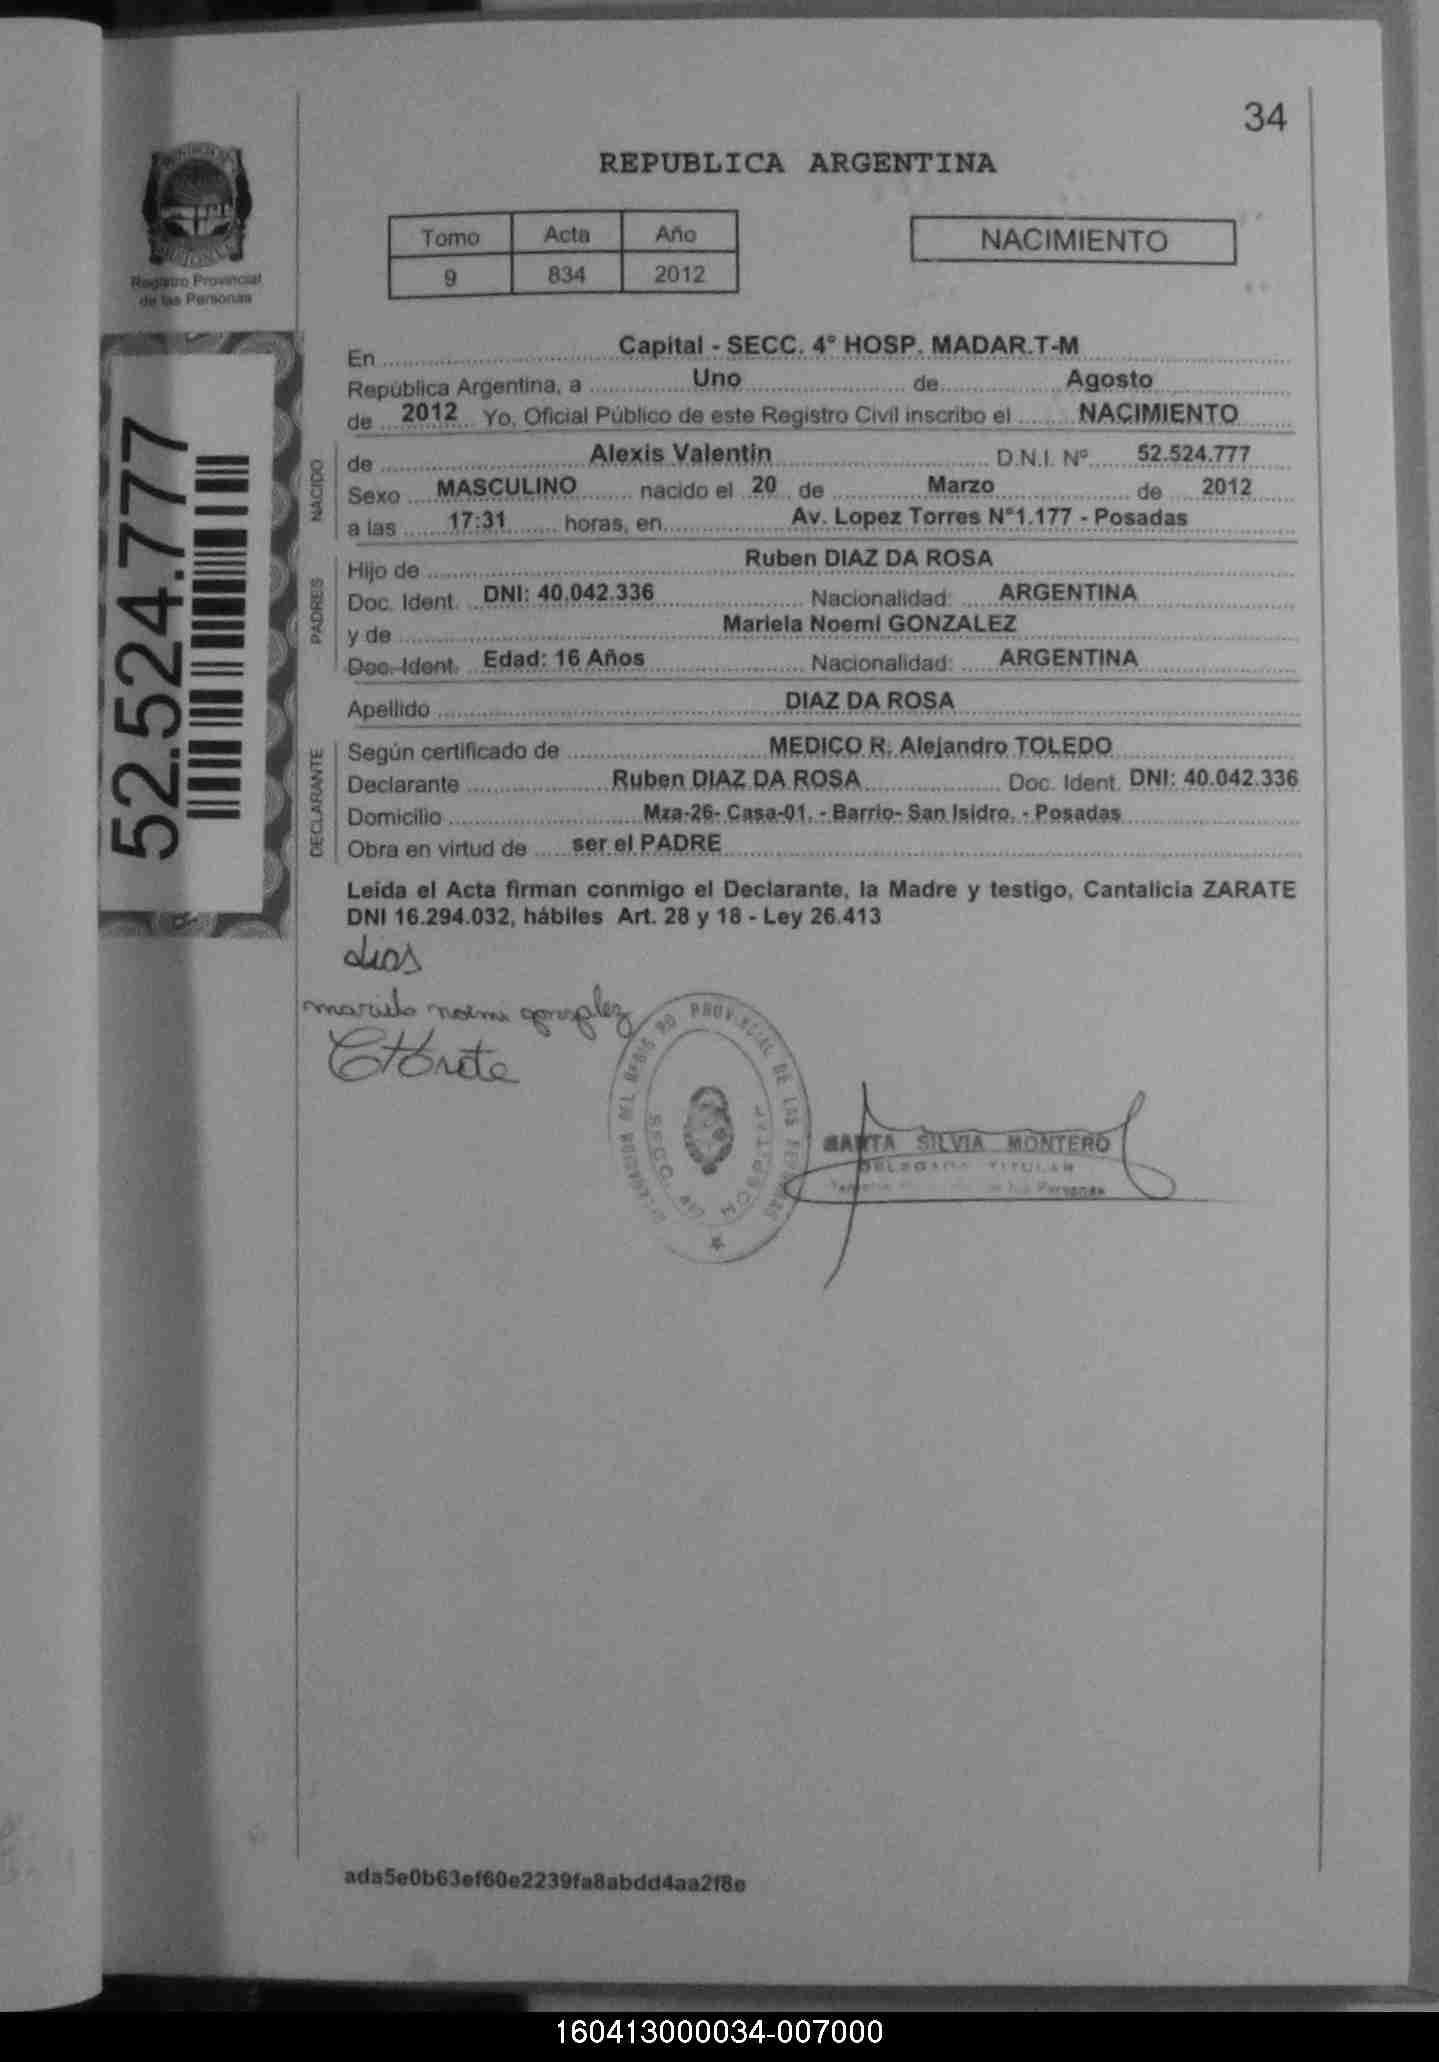 34
REPUBLICA ARGENTINA
Tomo Acta Año
9 834 2012
NACIMIENTO
Registro Provincial
de las Personas
52.524.777
En Capital - SECC. 4° HOSP. MADAR.T-M
República Argentina, a Uno de Agosto
de 2012 Yo, Oficial Público de este Registro Civil inscribo el NACIMIENTO
NACIDO
de Alexis Valentin D.N.I. Nº 52.524.777
Sexo MASCULINO nacido el 20 de Marzo de 2012
a las 17:31 horas, en Av. Lopez Torres N°1.177 - Posadas
PADRES
Hijo de Ruben DIAZ DA ROSA
Doc. Ident. DNI: 40.042.336 Nacionalidad: ARGENTINA
y de Mariela Noemi GONZALEZ
Doc. Ident. Edad: 16 Años Nacionalidad: ARGENTINA
Apellido DIAZ DA ROSA
DECLARANTE
Según certificado de MEDICO R. Alejandro TOLEDO
Declarante Ruben DIAZ DA ROSA Doc. Ident. DNI: 40.042.336
Domicilio Mza-26- Casa-01. - Barrio- San Isidro. - Posadas
Obra en virtud de ser el PADRE
Leida el Acta firman conmigo el Declarante, la Madre y testigo, Cantalicia ZARATE
DNI 16.294.032, hábiles Art. 28 y 18 - Ley 26.413
mariela noemi gonzalez
PROVINCIAL DE LAS PERSONAS
SECC. 4ta HOSPITAL
SILVIA MONTERO
DELEGADA TITULAR
de las Personas
ada5e0b63ef60e2239fa8abdd4aa2f8e
160413000034-007000